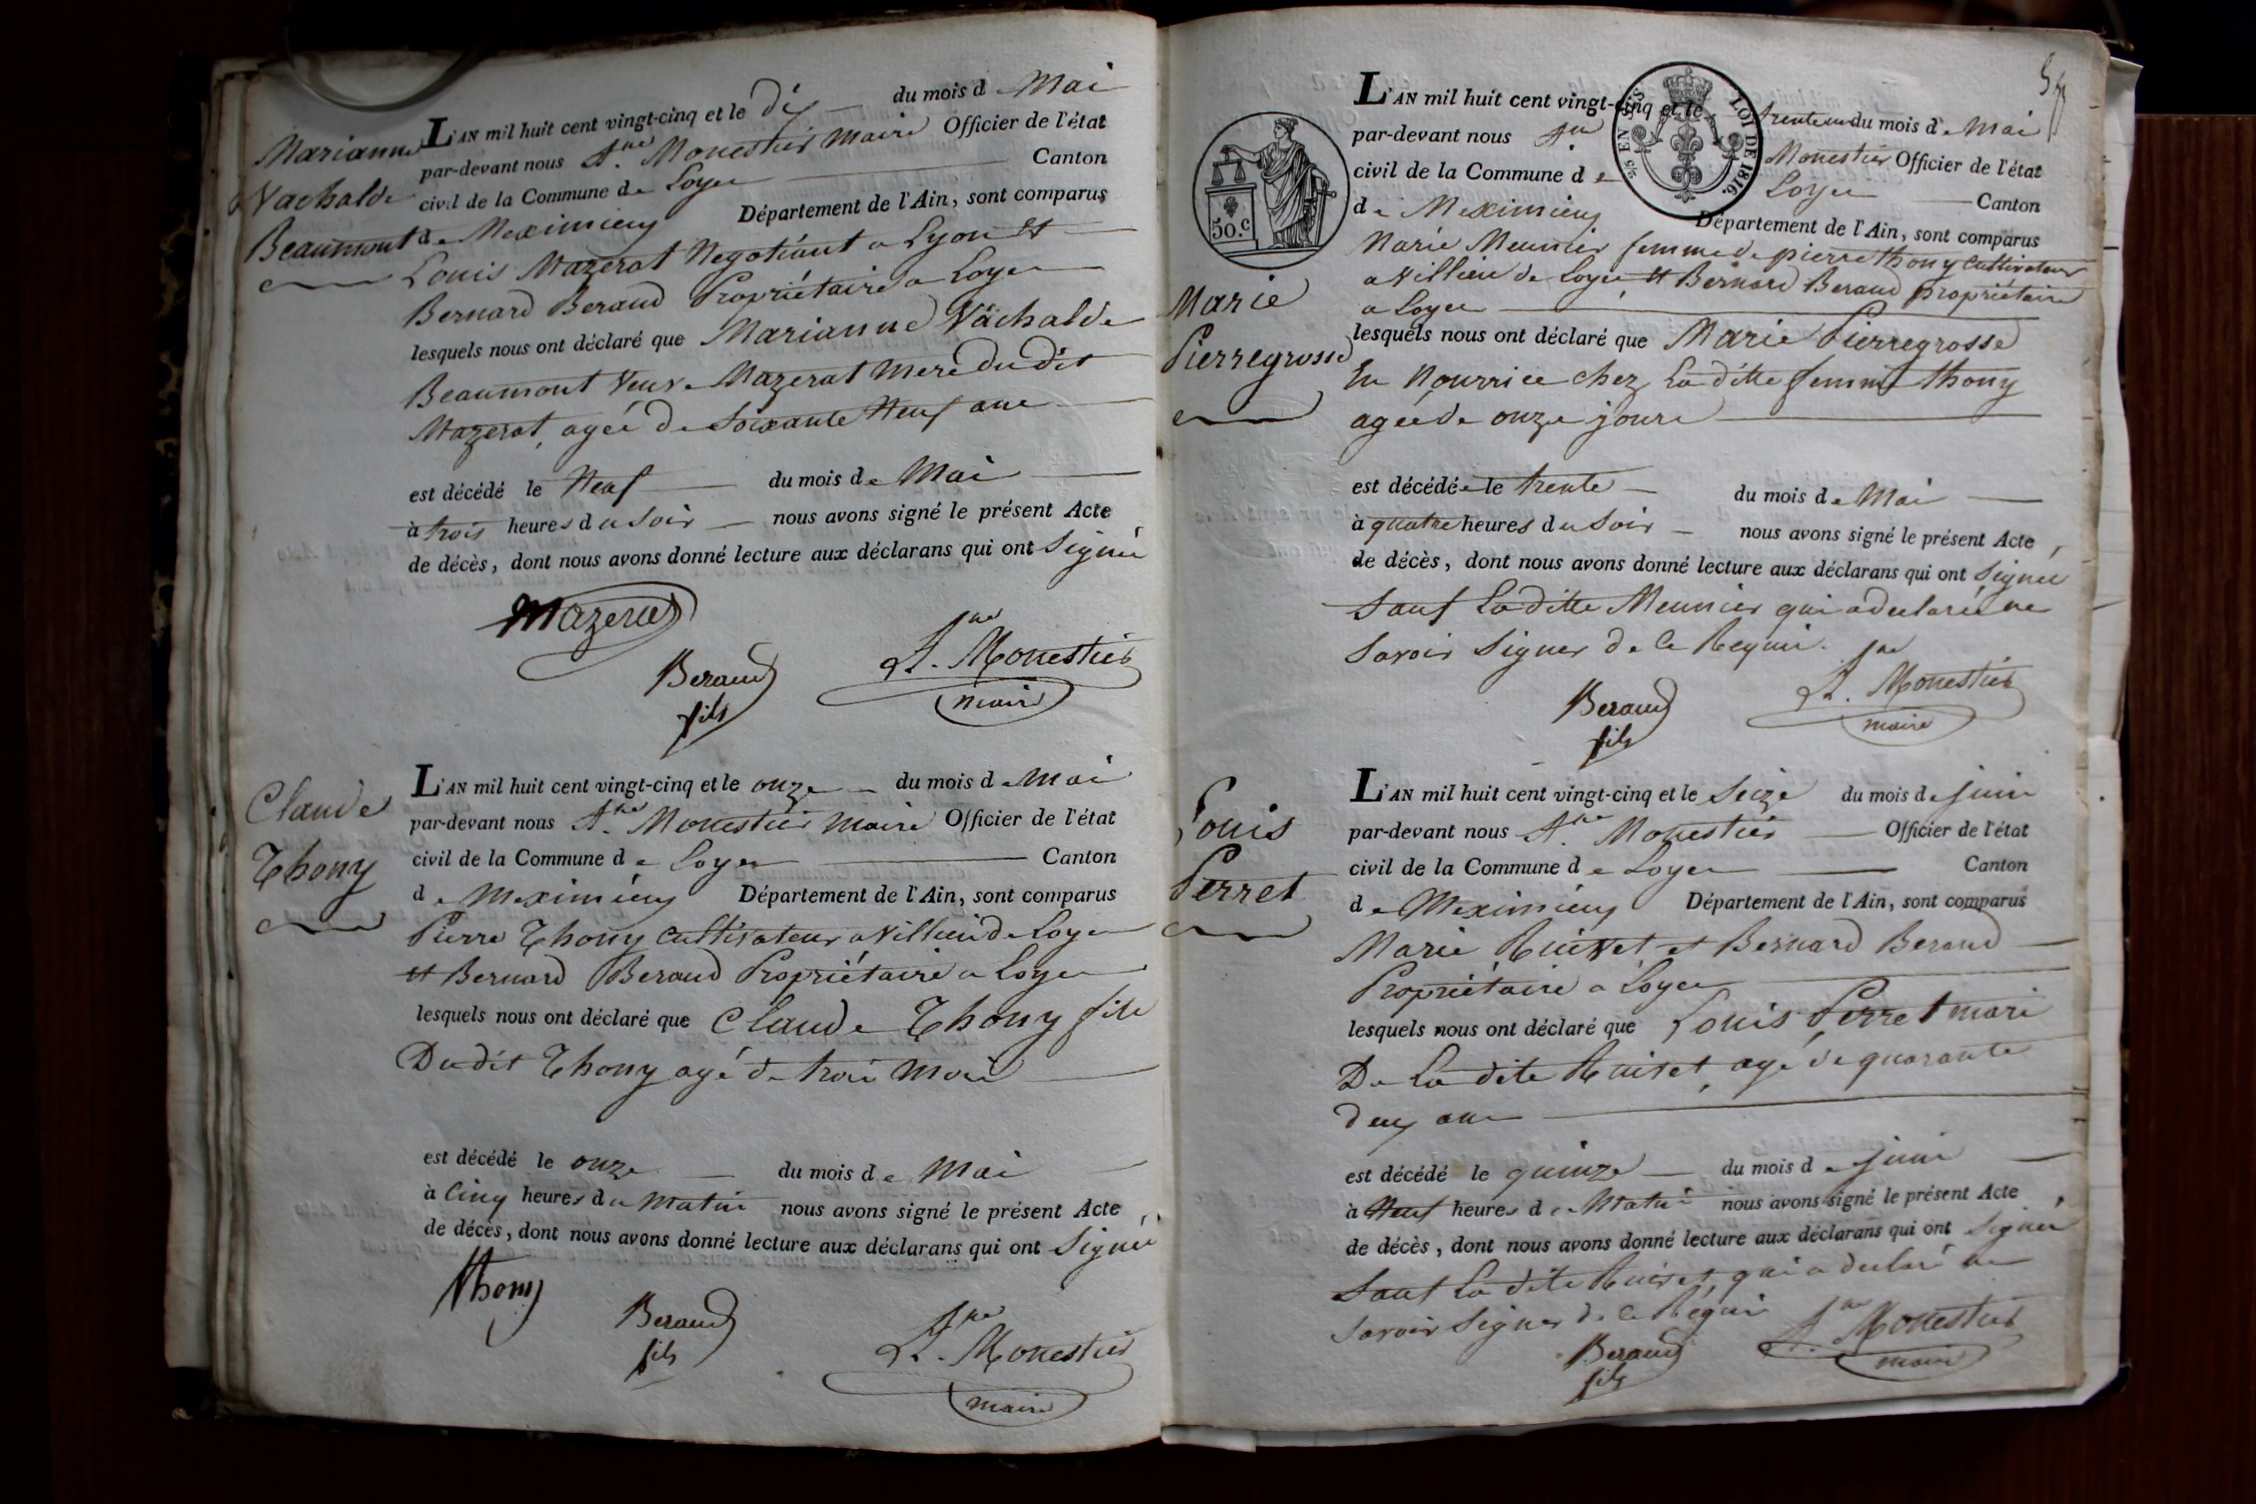 Marianne
Vachalde
Beaumont
L'AN mil huit cent vingt-cinq et le dix du mois de Mai
par-devant nous A.ne Monestier maire Officier de l'état
civil de la Commune de Loyes Canton
de Meximieux Département de l'Ain, sont comparus
Louis Mazerat Negotiant a Lyon et
Bernard Beraud Propriétaire a Loyes
lesquels nous ont déclaré que Marianne Vachalde
Beaumont Veuve Mazerat mere du dit
Mazerat, agée de soixante Neuf ans
est décédé le Neuf du mois de Mai
à trois heures du soir nous avons signé le présent Acte
de décès, dont nous avons donné lecture aux déclarans qui ont signé
Mazerat
Beraud
fils
A.ne Monestier
maire
Claude
Thony
L'AN mil huit cent vingt-cinq et le onze du mois de Mai
par-devant nous A.ne Monestier maire Officier de l'état
civil de la Commune de Loyes Canton
de Meximieux Département de l'Ain, sont comparus
Pierre Thony cultivateur a Villieu de Loyes
et Bernard Beraud Propriétaire a Loyes
lesquels nous ont déclaré que Claude Thony fils
Du dit Thony agé de trois mois
est décédé le onze du mois de Mai
à cinq heures du matin nous avons signé le présent Acte
de décès, dont nous avons donné lecture aux déclarans qui ont signé
thony
Beraud
fils
A.ne Monestier
maire
50.c
LOI DE 1816.
EN SUS
Marie
Pierregrosse
L'AN mil huit cent vingt-cinq et le trente un du mois de Mai
par-devant nous A.ne Monestier Officier de l'état
civil de la Commune de Loyes Canton
de Meximieux Département de l'Ain, sont comparus
Marie Meunier femme de pierre thony cultivateur
a Villieu de Loyes et Bernard Beraud propriétaire
a Loyes
lesquels nous ont déclaré que Marie Pierregrosse
En Nourrice chez la ditte femme thony
agée de onze jours
est décédée le trente du mois de Mai
à quatre heures du soir nous avons signé le présent Acte
de décès, dont nous avons donné lecture aux déclarans qui ont signé
sauf la ditte Meunier qui a declaré ne
savoir signer de ce Requis.
Beraud
fils
A.ne Monestier
maire
Louis
Perret
L'AN mil huit cent vingt-cinq et le seize du mois de juin
par-devant nous A.ne Monestier Officier de l'état
civil de la Commune de Loyes Canton
de Meximieux Département de l'Ain, sont comparus
Marie Ruivet et Bernard Beraud
Propriétaire a Loyes
lesquels nous ont déclaré que Louis Perret mari
De La dite Ruivet, agé de quarante
deux ans
est décédé le quinze du mois de juin
à Neuf heures du Matin nous avons signé le présent Acte
de décès, dont nous avons donné lecture aux déclarans qui ont signé
sauf la dite Ruivet, qui a declaré ne
savoir signer de ce Requis
Beraud
fils
A.ne Monestier
maire